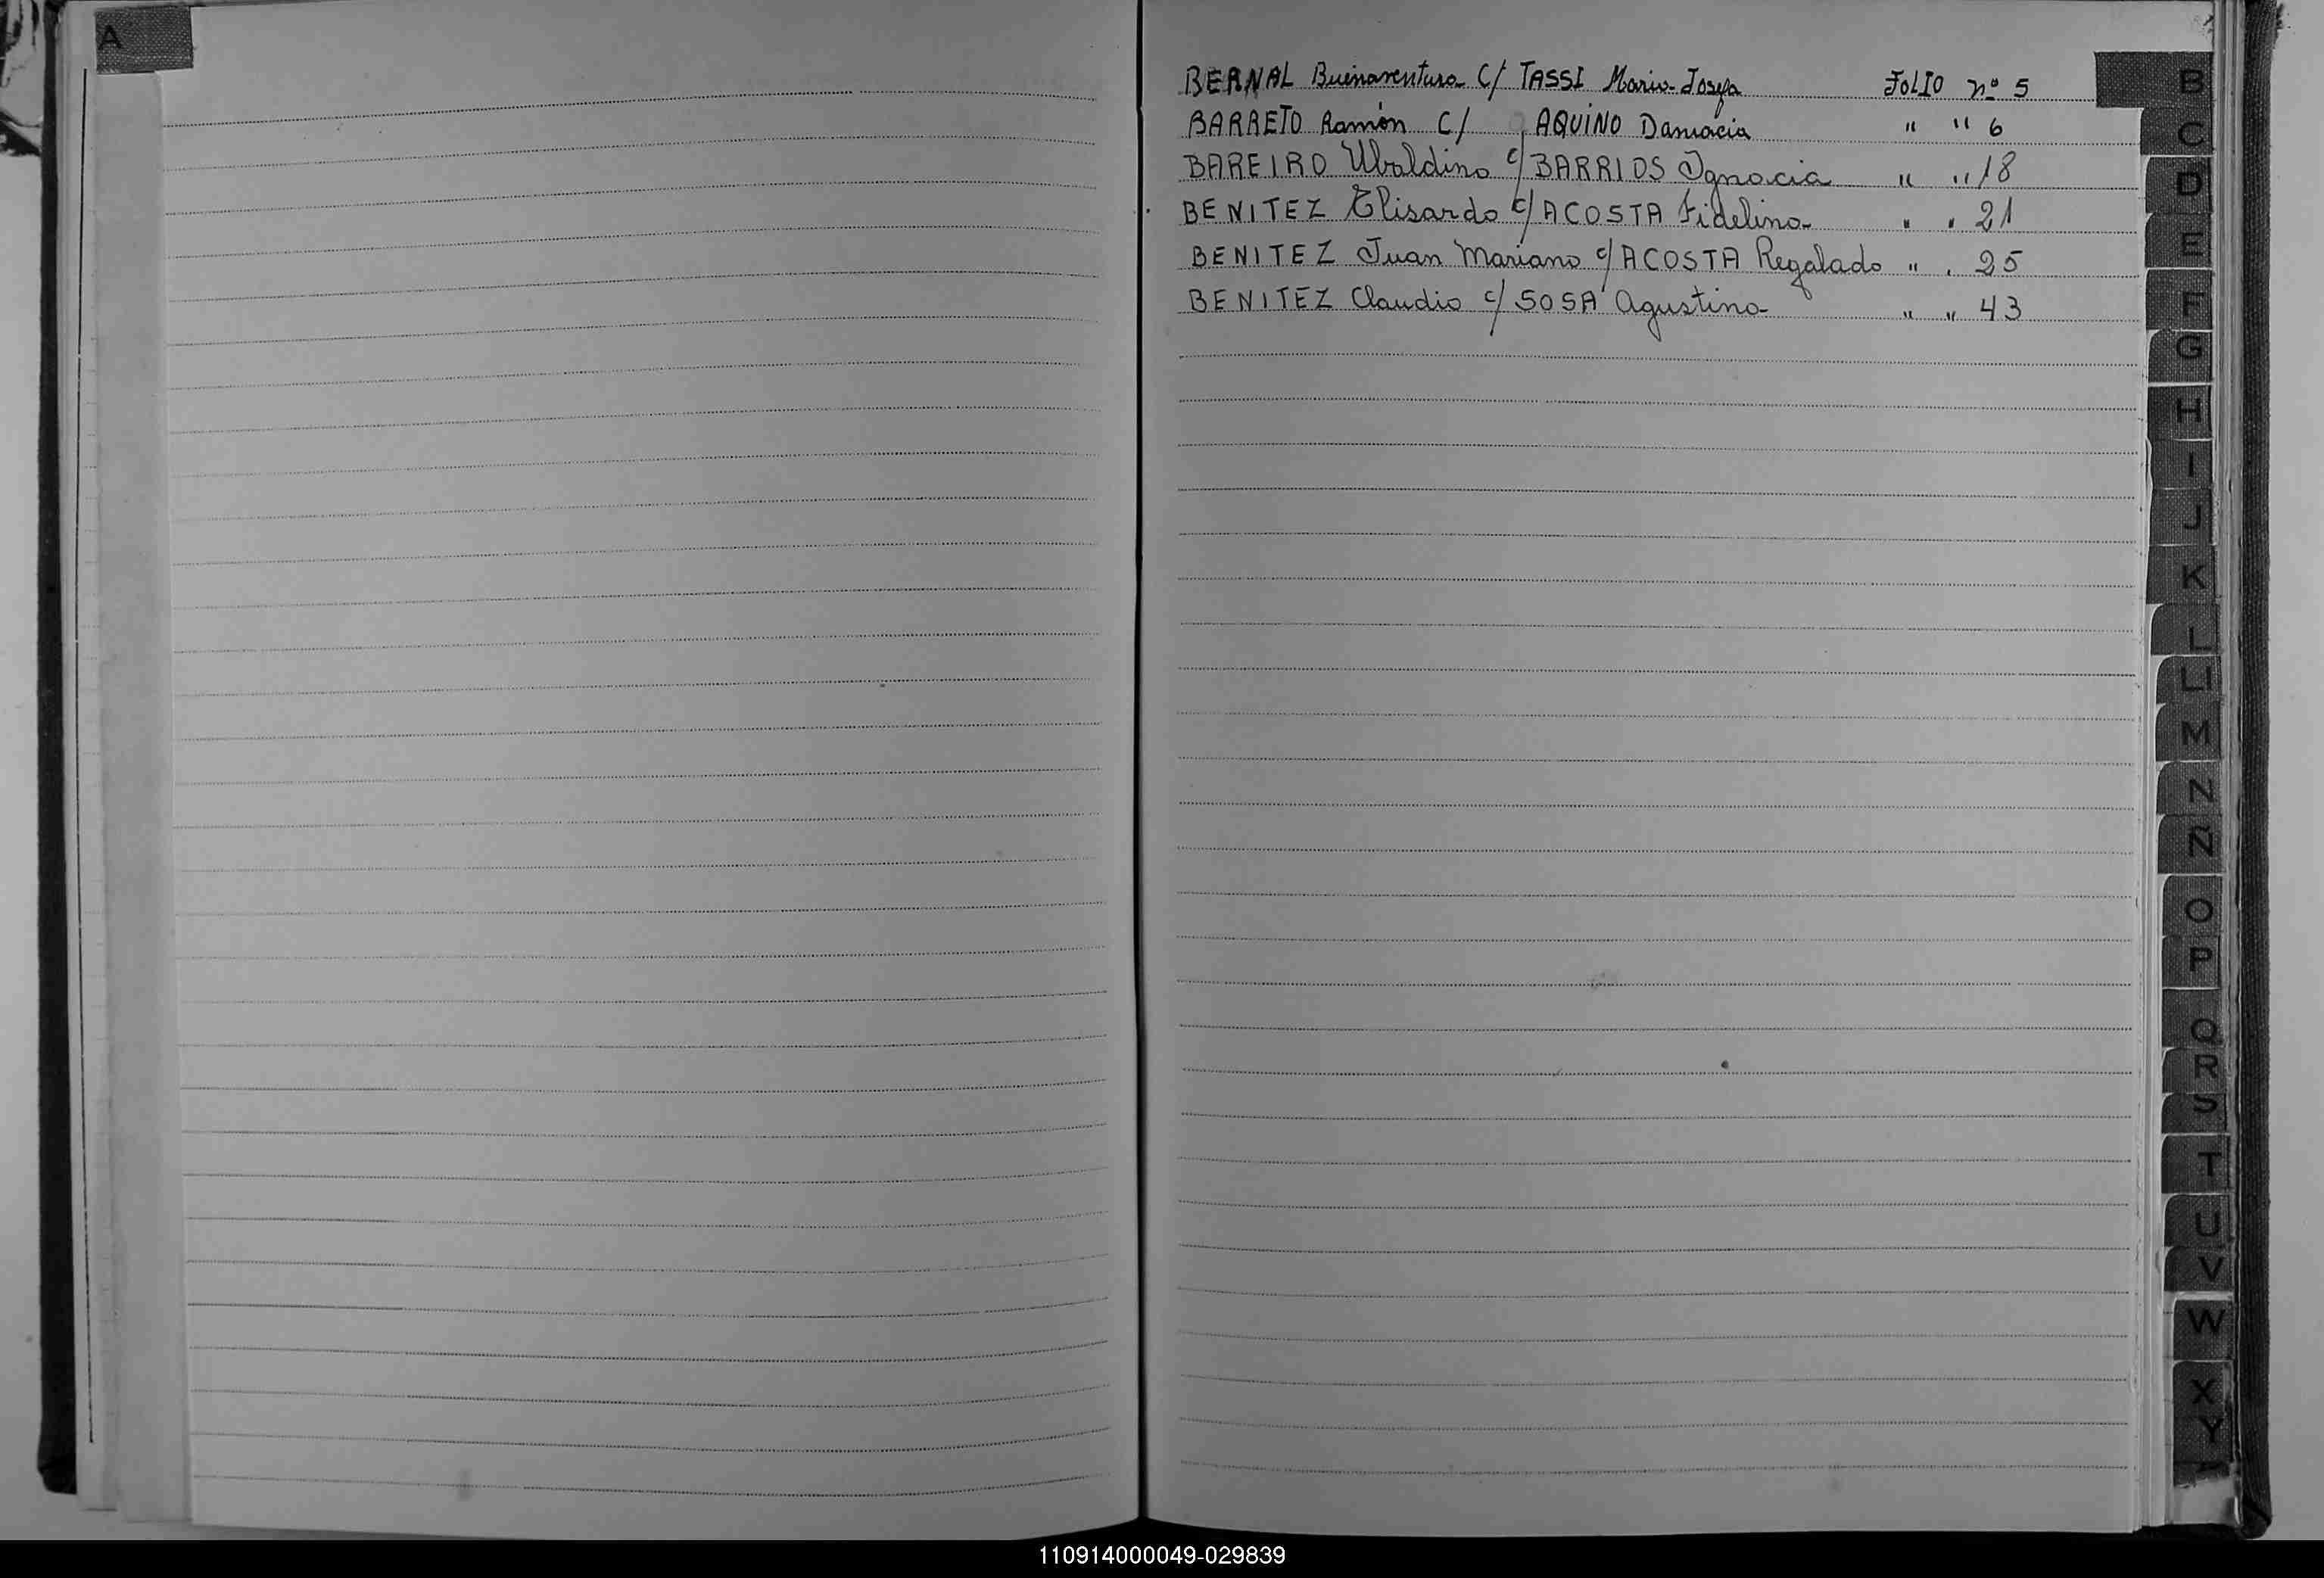 A
BERNAL Buenaventura C/ TASSI Maria Josefa FOLIO nº 5
BARRETO Ramón C/ AQUINO Damacia " " 6
BAREIRO Ubaldino c/ BARRIOS Ignacia " " 18
BENITEZ Elisardo c/ ACOSTA Fidelina " " 21
BENITEZ Juan Mariano c/ ACOSTA Regalado " " 25
BENITEZ Claudio c/ SOSA Agustina " " 43
B
C
D
E
F
G
H
I
J
K
L
LL
M
N
Ñ
O
P
Q
R
S
T
U
V
W
X
Y
110914000049-029839